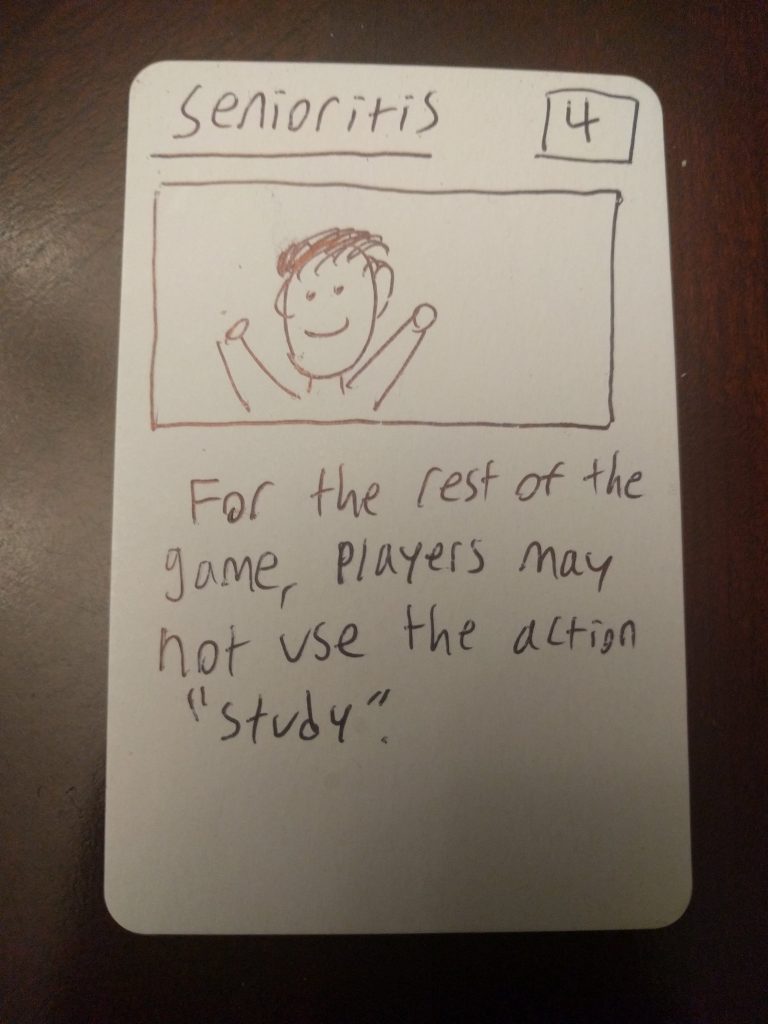 Senioritis
4
For the rest of the
game, players may
not use the action
"study".